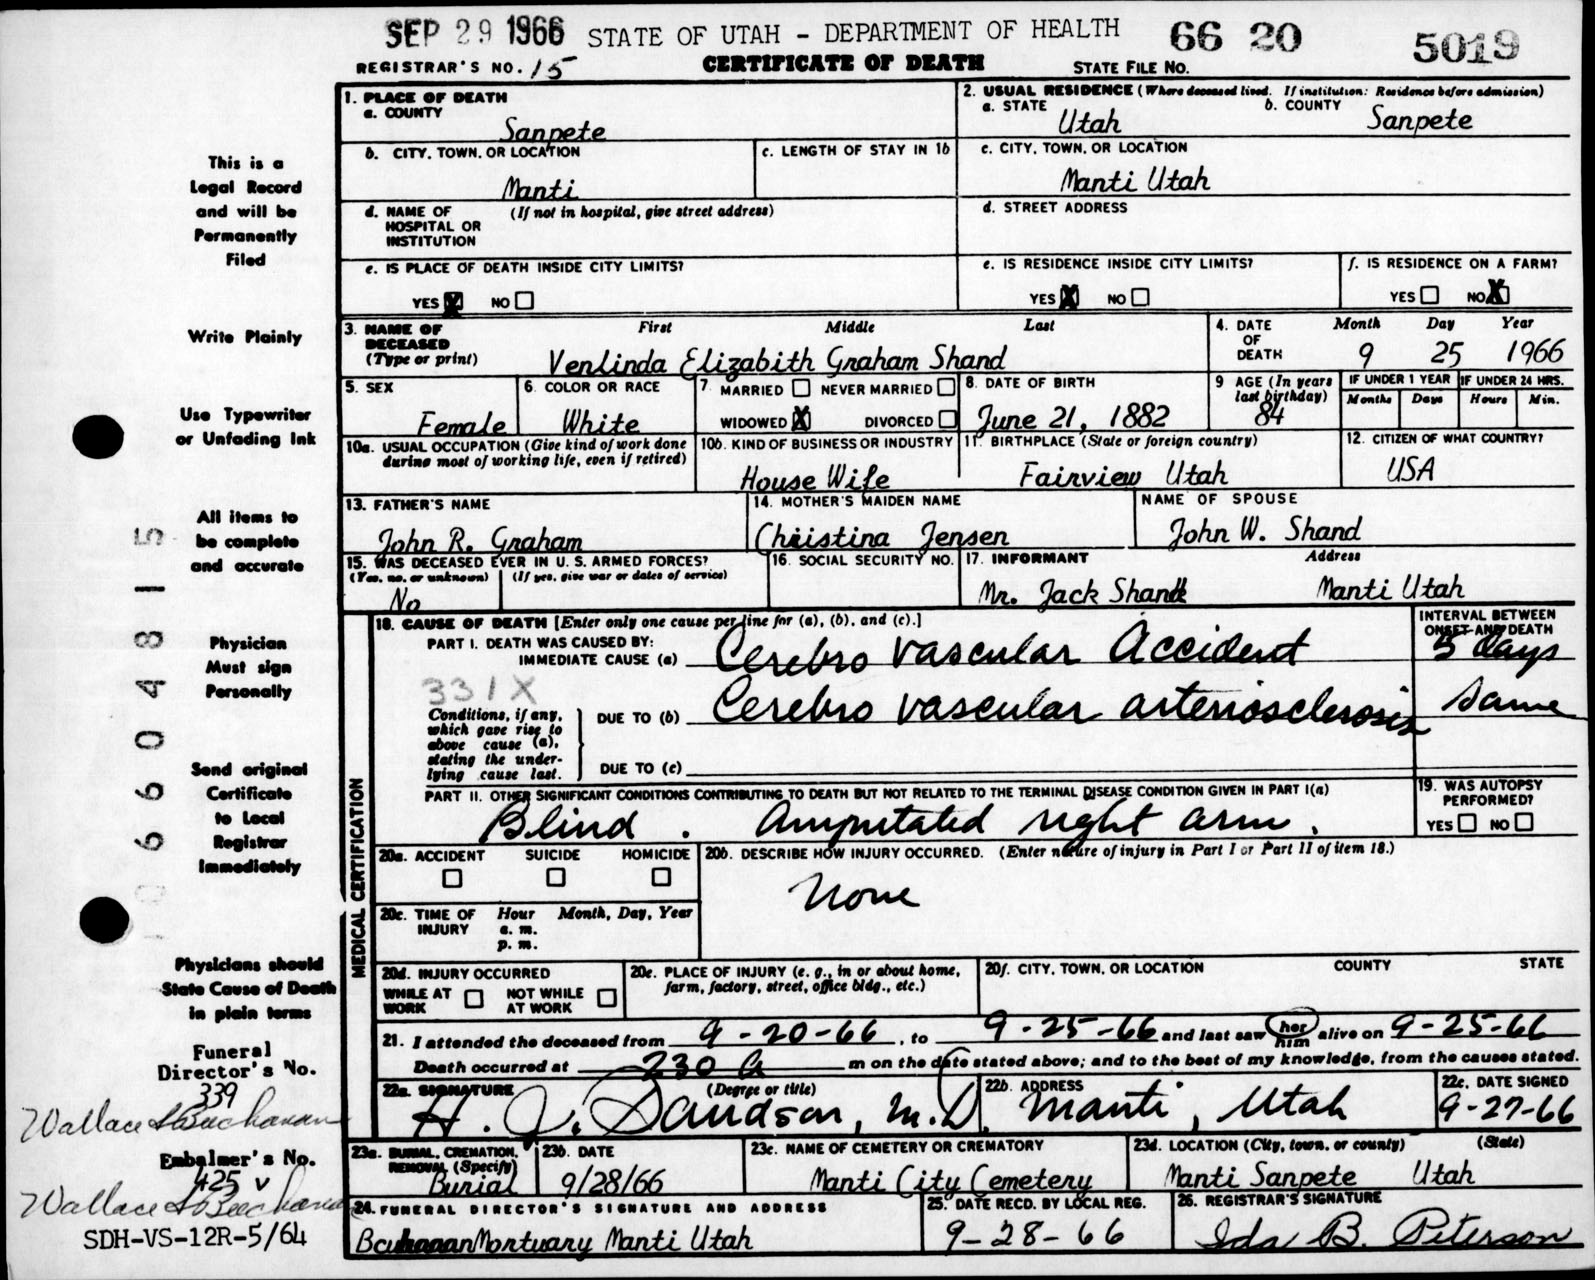 SEP 29 1966 STATE OF UTAH - DEPARTMENT OF HEALTH 66 20 5019
REGISTRAR'S NO. 15 CERTIFICATE OF DEATH STATE FILE NO.
1. PLACE OF DEATH
a. COUNTY
Sanpete
2. USUAL RESIDENCE (Where deceased lived. If institution: Residence before admission)
a. STATE b. COUNTY
Utah Sanpete
b. CITY, TOWN, OR LOCATION
Manti
c. LENGTH OF STAY IN 1b
c. CITY, TOWN, OR LOCATION
Manti Utah
d. NAME OF (If not in hospital, give street address)
HOSPITAL OR
INSTITUTION
d. STREET ADDRESS
e. IS PLACE OF DEATH INSIDE CITY LIMITS?
YES X NO
e. IS RESIDENCE INSIDE CITY LIMITS?
YES X NO
f. IS RESIDENCE ON A FARM?
YES NO X
3. NAME OF First Middle Last
DECEASED
(Type or print) Venlinda Elizabith Graham Shand
4. DATE Month Day Year
OF
DEATH 9 25 1966
5. SEX
Female
6. COLOR OR RACE
White
7. MARRIED NEVER MARRIED
WIDOWED X DIVORCED
8. DATE OF BIRTH
June 21, 1882
9 AGE (In years
last birthday)
84
IF UNDER 1 YEAR IF UNDER 24 HRS.
Months Days Hours Min.
10a. USUAL OCCUPATION (Give kind of work done
during most of working life, even if retired)
10b. KIND OF BUSINESS OR INDUSTRY
House Wife
11. BIRTHPLACE (State or foreign country)
Fairview Utah
12. CITIZEN OF WHAT COUNTRY?
USA
13. FATHER'S NAME
John R. Graham
14. MOTHER'S MAIDEN NAME
Christina Jensen
NAME OF SPOUSE
John W. Shand
15. WAS DECEASED EVER IN U. S. ARMED FORCES?
(Yes, no, or unknown) (If yes, give war or dates of service)
No
16. SOCIAL SECURITY NO.
17. INFORMANT Address
Mr. Jack Shand Manti Utah
MEDICAL CERTIFICATION
18. CAUSE OF DEATH [Enter only one cause per line for (a), (b), and (c).]
INTERVAL BETWEEN
ONSET AND DEATH
PART I. DEATH WAS CAUSED BY:
IMMEDIATE CAUSE (a) Cerebro vascular Accident 5 days
331X
Conditions, if any,
which gave rise to
above cause (a),
stating the under-
lying cause last.
DUE TO (b) Cerebro vascular arteriosclerosis Same
DUE TO (c)
PART II. OTHER SIGNIFICANT CONDITIONS CONTRIBUTING TO DEATH BUT NOT RELATED TO THE TERMINAL DISEASE CONDITION GIVEN IN PART I(a)
Blind. Amputated right arm.
19. WAS AUTOPSY
PERFORMED?
YES NO
20a. ACCIDENT SUICIDE HOMICIDE
20b. DESCRIBE HOW INJURY OCCURRED. (Enter nature of injury in Part I or Part II of item 18.)
None
20c. TIME OF Hour Month, Day, Year
INJURY a. m.
p. m.
20d. INJURY OCCURRED
WHILE AT NOT WHILE
WORK AT WORK
20e. PLACE OF INJURY (e. g., in or about home,
farm, factory, street, office bldg., etc.)
20f. CITY, TOWN, OR LOCATION COUNTY STATE
21. I attended the deceased from 9-20-66, to 9-25-66 and last saw her him alive on 9-25-66
Death occurred at 230 a m on the date stated above; and to the best of my knowledge, from the causes stated.
22a. SIGNATURE (Degree or title)
M.D.
22b. ADDRESS
Manti, Utah
22c. DATE SIGNED
9-27-66
23a. BURIAL, CREMATION,
REMOVAL (Specify)
Burial
23b. DATE
9/28/66
23c. NAME OF CEMETERY OR CREMATORY
Manti City Cemetery
23d. LOCATION (City, town, or county) (State)
Manti Sanpete Utah
24. FUNERAL DIRECTOR'S SIGNATURE AND ADDRESS
Mortuary Manti Utah
25. DATE RECD. BY LOCAL REG.
9-28-66
26. REGISTRAR'S SIGNATURE
Ida B. Peterson
This is a
Legal Record
and will be
Permanently
Filed
Write Plainly
Use Typewriter
or Unfading Ink
All items to
be complete
and accurate
Physician
Must sign
Personally
Send original
Certificate
to Local
Registrar
Immediately
Physicians should
State Cause of Death
in plain terms
Funeral
Director's No.
339
Wallace Buchanan
Embalmer's No.
425
Wallace Buchanan
SDH-VS-12R-5/64